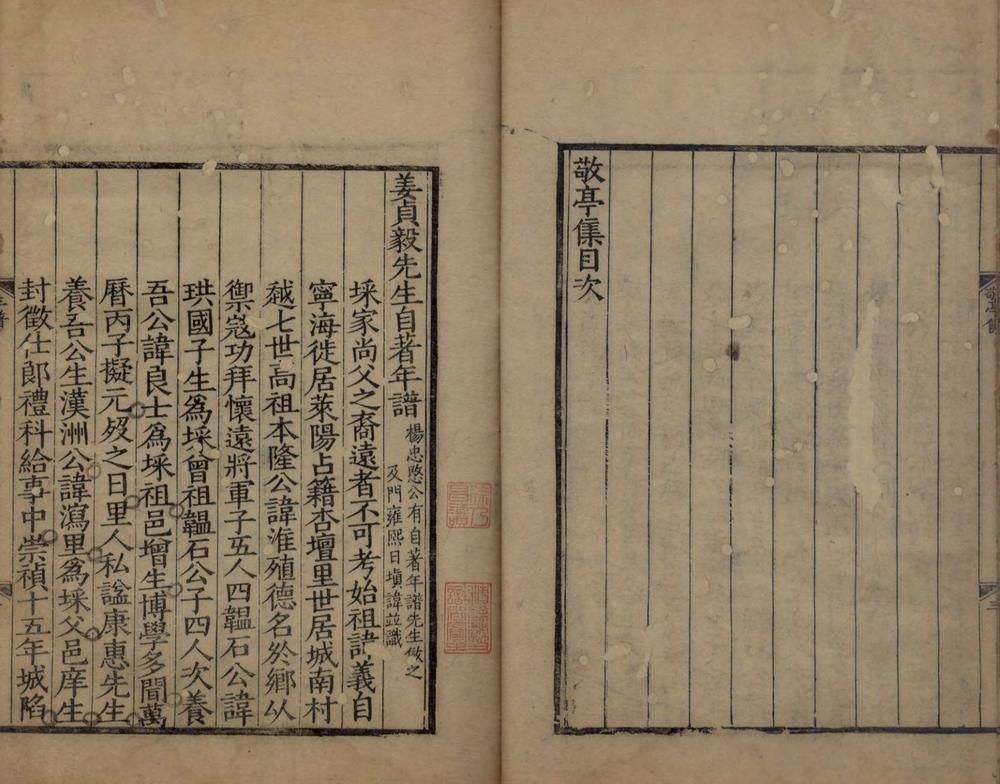 敬亭集目次
敬亭集
三
姜貞毅先生自著年譜
楊忠愍公有自著年譜先生倣之
及門雍熙日塡諱並識
埰家尚父之裔遠者不可考始祖諱義自
寧海徙居萊陽占籍杏壇里世居城南村
越七世高祖本隆公諱淮殖德名於鄉以
禦寇功拜懷遠將軍子五人四韞石公諱
珙國子生爲埰曾祖韞石公子四人次養
吾公諱良士爲埰祖邑增生博學多聞萬
曆丙子擬元歿之日里人私諡康惠先生
養吾公生漢洲公諱瀉里爲埰父邑庠生
封徵仕郎禮科給事中崇禎十五年城陷